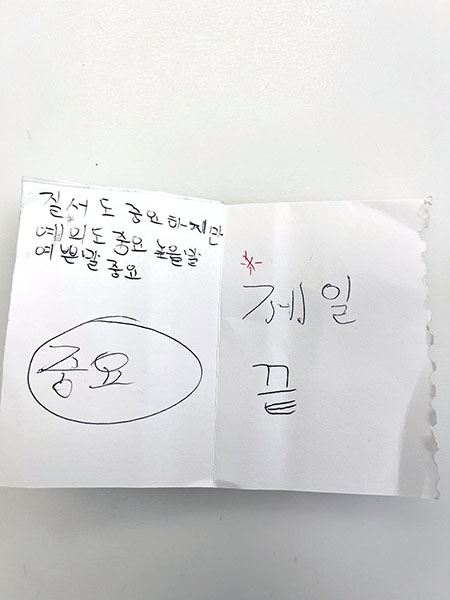 질서도 중요하지만
예외도 중요 높을말
예쁜말 중요
중요
*
제일
끝